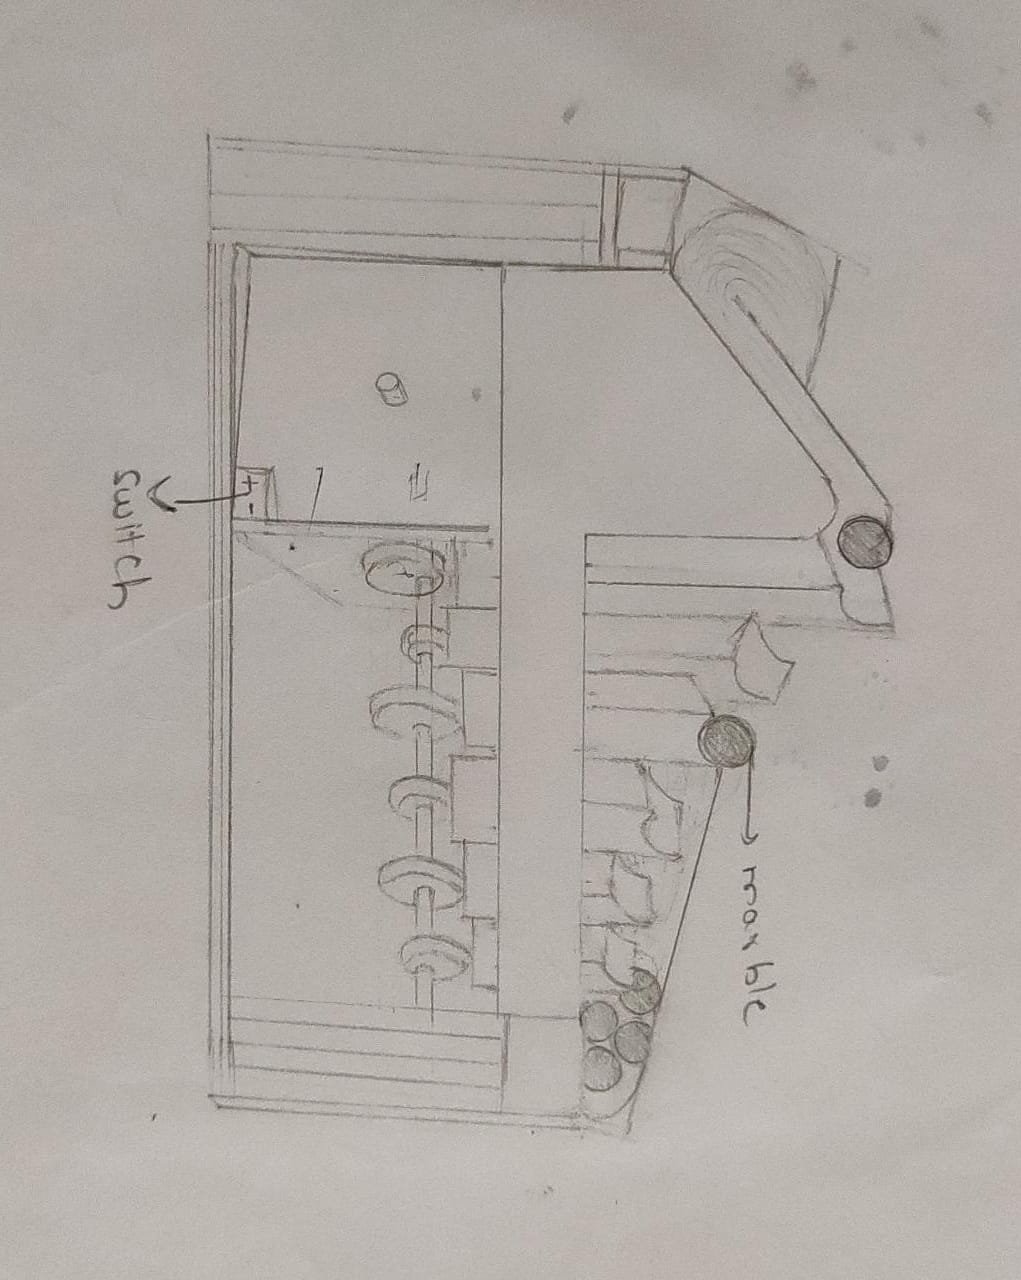 marble
+ -
switch